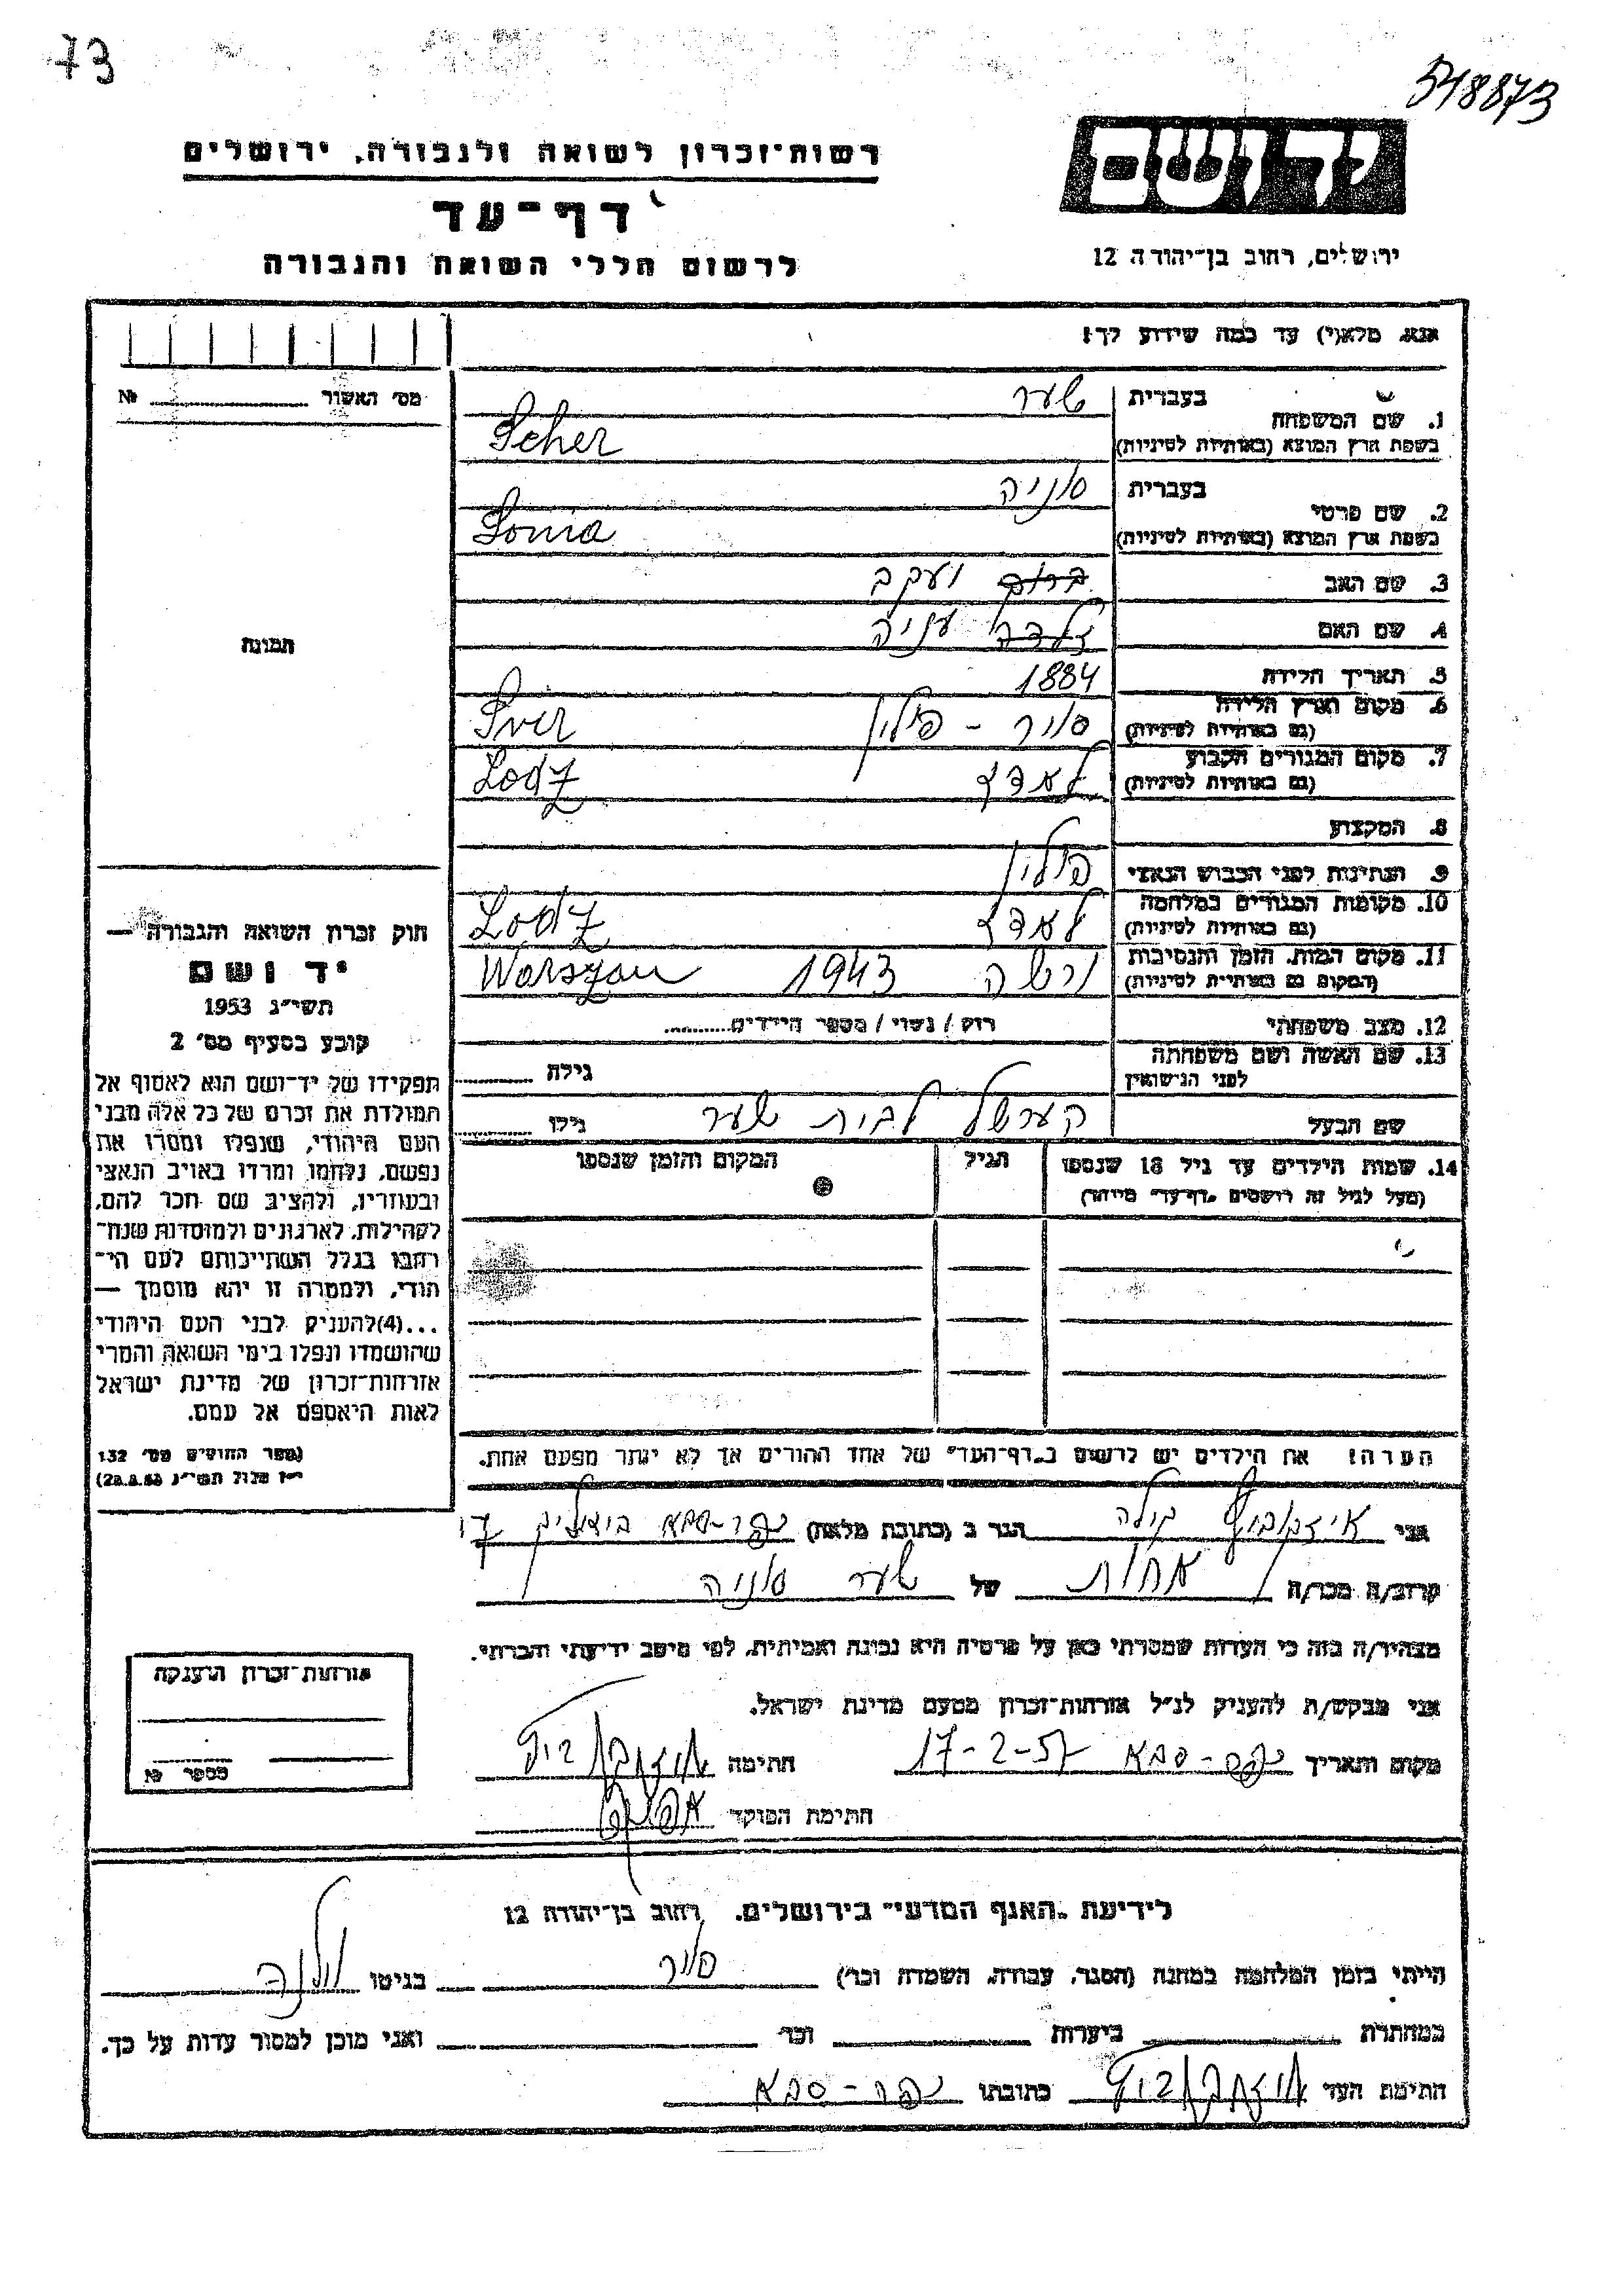 73
518873
יד ושם
רשות-זכרון לשואה ולגבורה, ירושלים
דף-עד
לרשום חללי השואה והגבורה
ירושלים, רחוב בן-יהודה 12
אנא, מלא(י) עד כמה שידוע לך:
מס׳ האשור № 
בעברית שער
1. שם המשפחה
בשפת ארץ המוצא (באותיות לטיניות) Scher
בעברית סוניה
2. שם פרטי
בשפת ארץ המוצא (באותיות לטיניות) Sonia
3. שם האב ברוך יעקב
4. שם האם זלדה
5. תאריך הלידה 1884
6. מקום וארץ הלידה סויר - פולין
(גם באותיות לטיניות) Svir
7. מקום המגורים הקבוע לאדז
(גם באותיות לטיניות) Lodz
8. המקצוע
9. הנתינות לפני הכבוש הנאצי פולין
10. מקומות המגורים במלחמה לאדז
(גם באותיות לטיניות) Lodz
11. מקום המות, הזמן והנסיבות ורשה 1943
(המקום גם באותיות לטיניות) Warszaw
12. מצב משפחתי רוק / נשוי / מספר הילדים
13. שם האשה ושם משפחתה
לפני הנישואין גילה
שם הבעל הערשל לבית שער גילו
14. שמות הילדים עד גיל 18 שנספו הגיל המקום והזמן שנספו
(מעל לגיל זה רושמים „דף-עד” מיוחד)
תמונה
חוק זכרון השואה והגבורה —
יד ושם
תשי״ג 1953
קובע בסעיף מס׳ 2
תפקידו של יד-ושם הוא לאסוף אל
המולדת את זכרם של כל אלה מבני
העם היהודי, שנפלו ומסרו את
נפשם, נלחמו ומרדו באויב הנאצי
ובעוזריו, ולהציב שם וזכר להם,
לקהילות, לארגונים ולמוסדות שנח-
רבו בגלל השתייכותם לעם הי-
הודי, ולמטרה זו יהא מוסמך —
...(4)להעניק לבני העם היהודי
שהושמדו ונפלו בימי השואה והמרי
אזרחות-זכרון של מדינת ישראל
לאות היאספם אל עמם.
(ספר החוקים מס׳ 132
י״ז אלול תשי״ג 28.8.53)
הערה! את הילדים יש לרשום ב„דף-העד” של אחד ההורים אך לא יותר מפעם אחת.
אני איזקוביץ בילה הגר ב (כתובת מלאה) כפר-סבא ביאליק 17
קרוב/ה מכר/ה אחות של שער סוניה
מצהיר/ה בזה כי העדות שמסרתי כאן על פרטיה היא נכונה ואמיתית, לפי מיטב ידיעתי והכרתי.
אני מבקש/ת להעניק לנ״ל אזרחות-זכרון מטעם מדינת ישראל.
מקום ותאריך כפר-סבא 17-2-57 חתימה איזקוביץ
חתימת הפוקד
אזרחות-זכרון הוענקה
מספר №
לידיעת „האגף המדעי” בירושלים, רחוב בן-יהודה 12
הייתי בזמן המלחמה במחנה (הסגר, עבודה, השמדה וכו׳) סויר בגיטו וילנה
במחתרת ביערות וכו׳ ואני מוכן למסור עדות על כך.
חתימת העד איזקוביץ כתובתו כפר-סבא